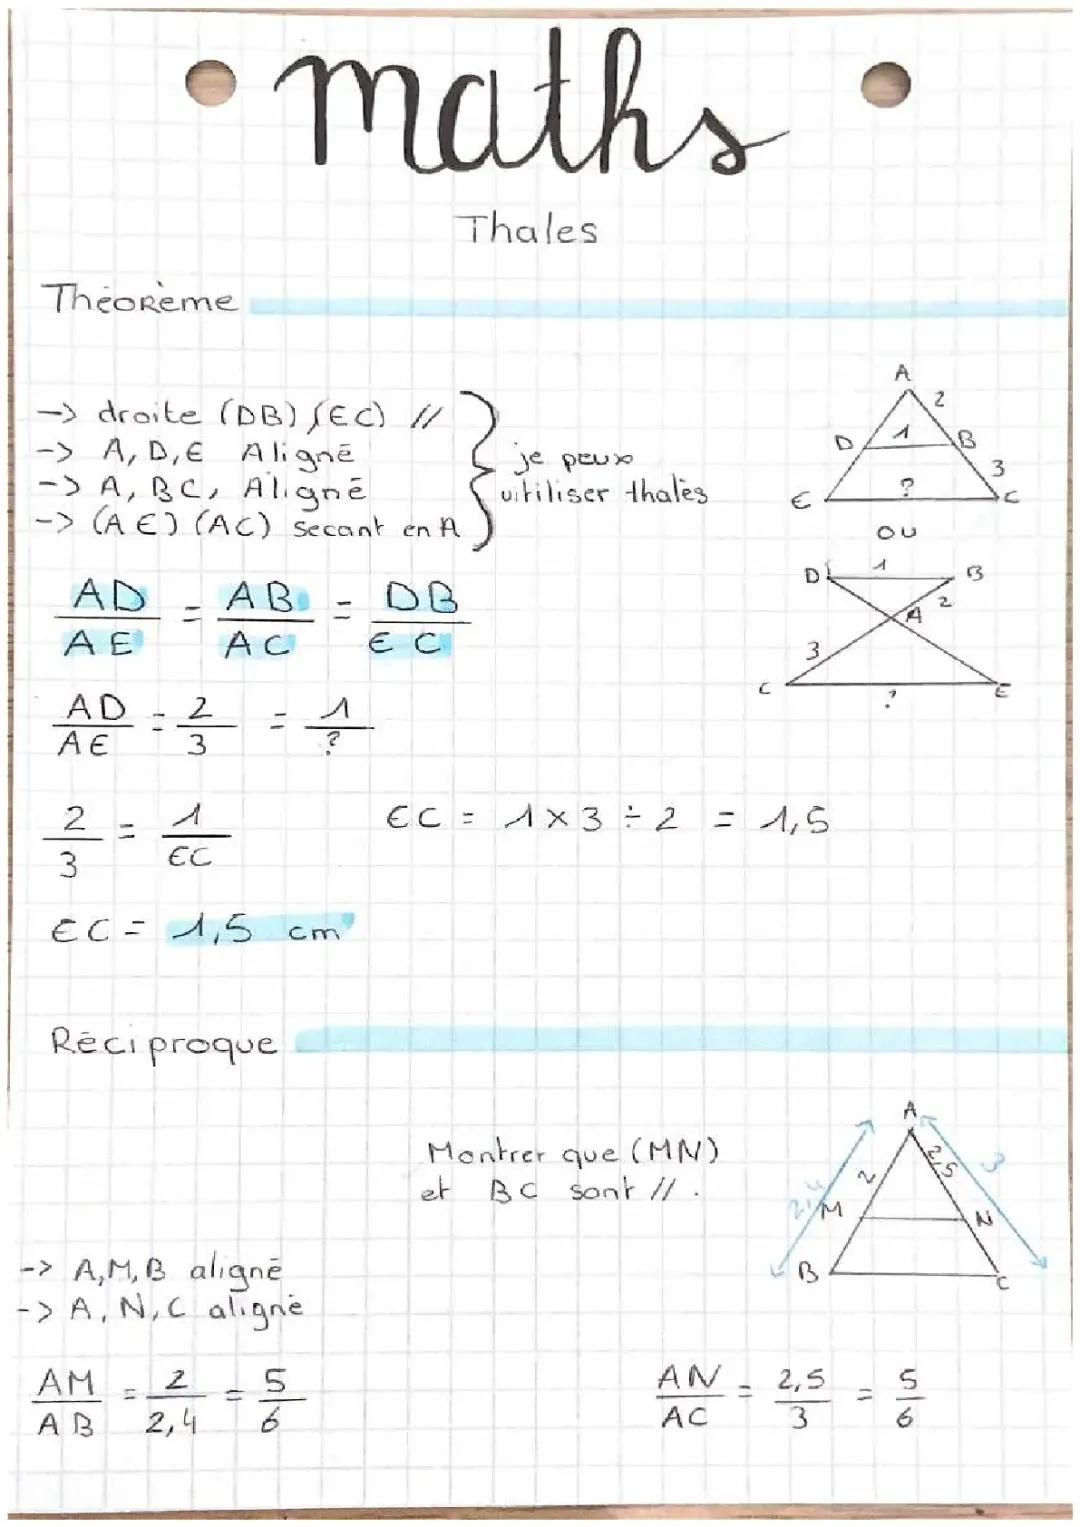 maths
Thales
Théorème
-> droite (DB) (EC) //
-> A, D, E Aligné
-> A, BC, Aligné
-> (AE) (AC) secant en A
je peux
uitiliser thalès
A
2
D
1
B
3
E
?
C
OU
D
1
B
2
A
3
C
?
E
AD/AE = AB/AC = DB/EC
AD/AE = 2/3 = 1/?
2/3 = 1/EC
EC = 1 x 3 ÷ 2 = 1,5
EC = 1,5 cm
Réciproque
Montrer que (MN)
et BC sont // .
A
2
2,5
3
2,4
M
N
B
C
-> A,M,B aligné
-> A, N, C aligné
AM/AB = 2/2,4 = 5/6
AN/AC = 2,5/3 = 5/6